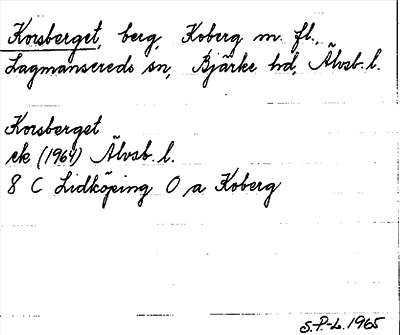 Korsberget, berg, Koberg m. fl.,
Lagmansereds sn, Bjärke hd, Älvsb. l.
Korsberget
ek (1964) Älvsb. l.
8 C Lidköping O a Koberg
S.P-L. 1965